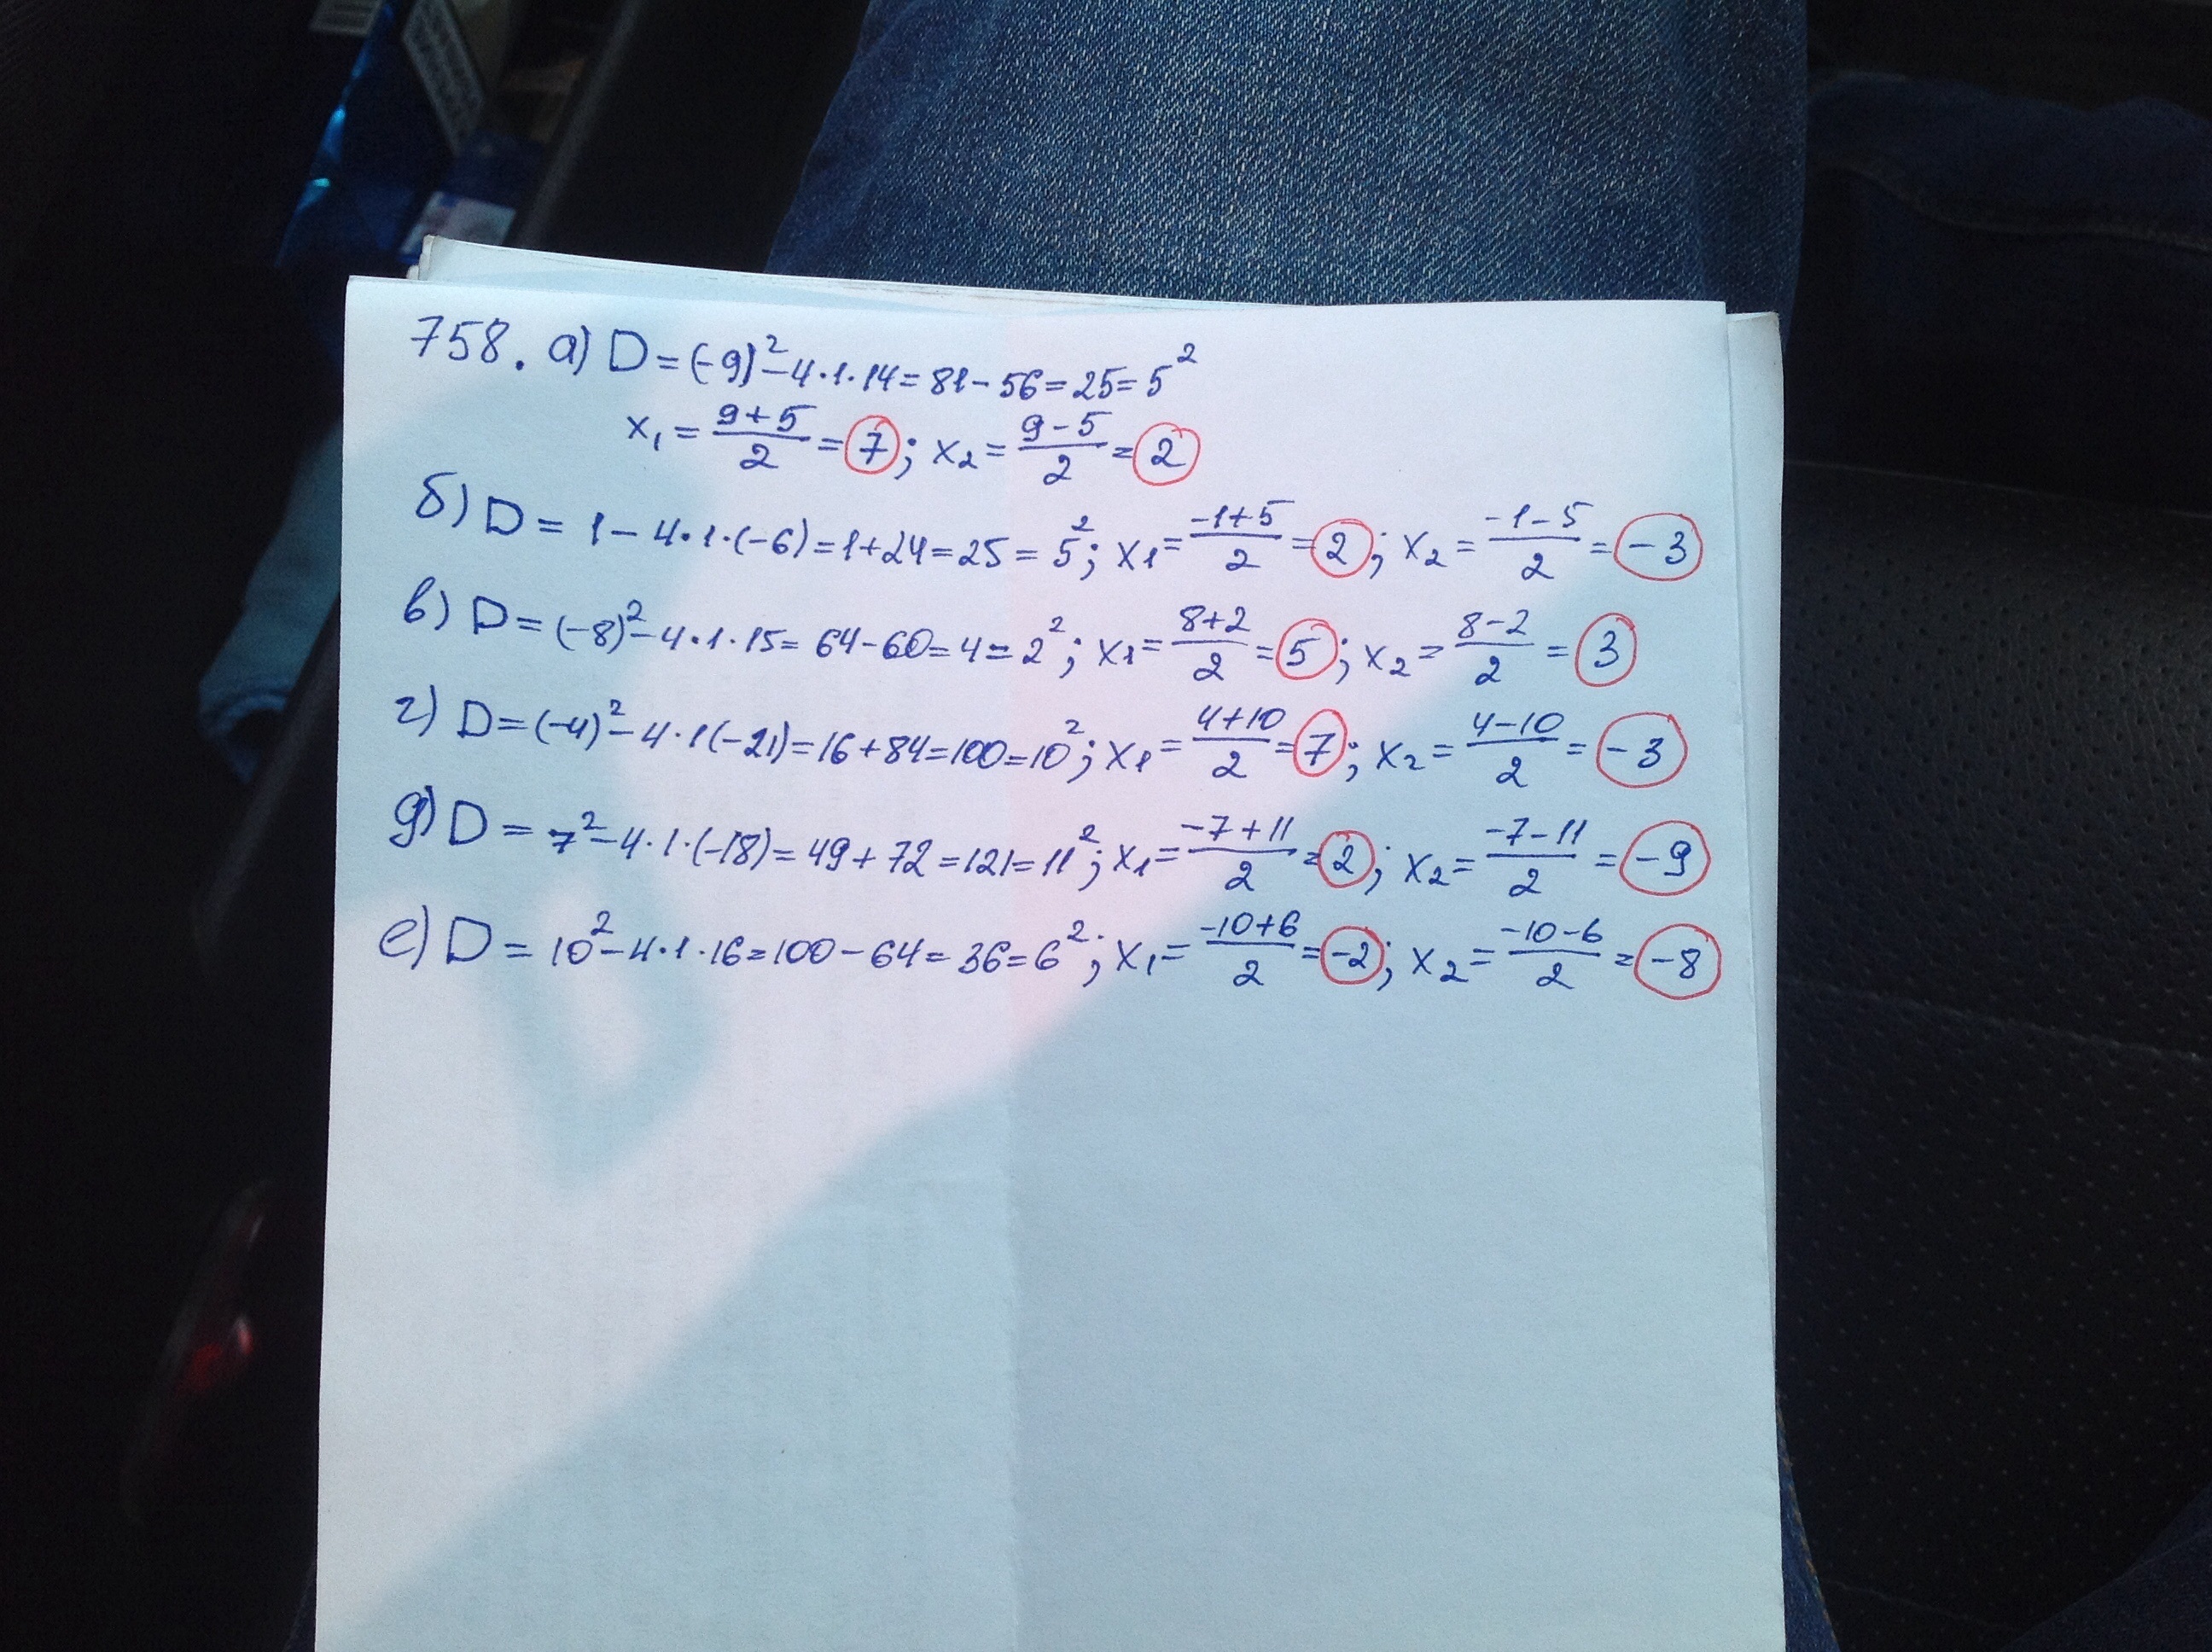 758. а) D = (-9)² - 4·1·14 = 81 - 56 = 25 = 5²
x₁ = (9+5)/2 = 7; x₂ = (9-5)/2 = 2
б) D = 1 - 4·1·(-6) = 1+24 = 25 = 5²; x₁ = (-1+5)/2 = 2; x₂ = (-1-5)/2 = -3
в) D = (-8)² - 4·1·15 = 64-60 = 4 = 2²; x₁ = (8+2)/2 = 5; x₂ = (8-2)/2 = 3
г) D = (-4)² - 4·1(-21) = 16+84 = 100 = 10²; x₁ = (4+10)/2 = 7; x₂ = (4-10)/2 = -3
д) D = 7² - 4·1·(-18) = 49+72 = 121 = 11²; x₁ = (-7+11)/2 = 2; x₂ = (-7-11)/2 = -9
е) D = 10² - 4·1·16 = 100-64 = 36 = 6²; x₁ = (-10+6)/2 = -2; x₂ = (-10-6)/2 = -8